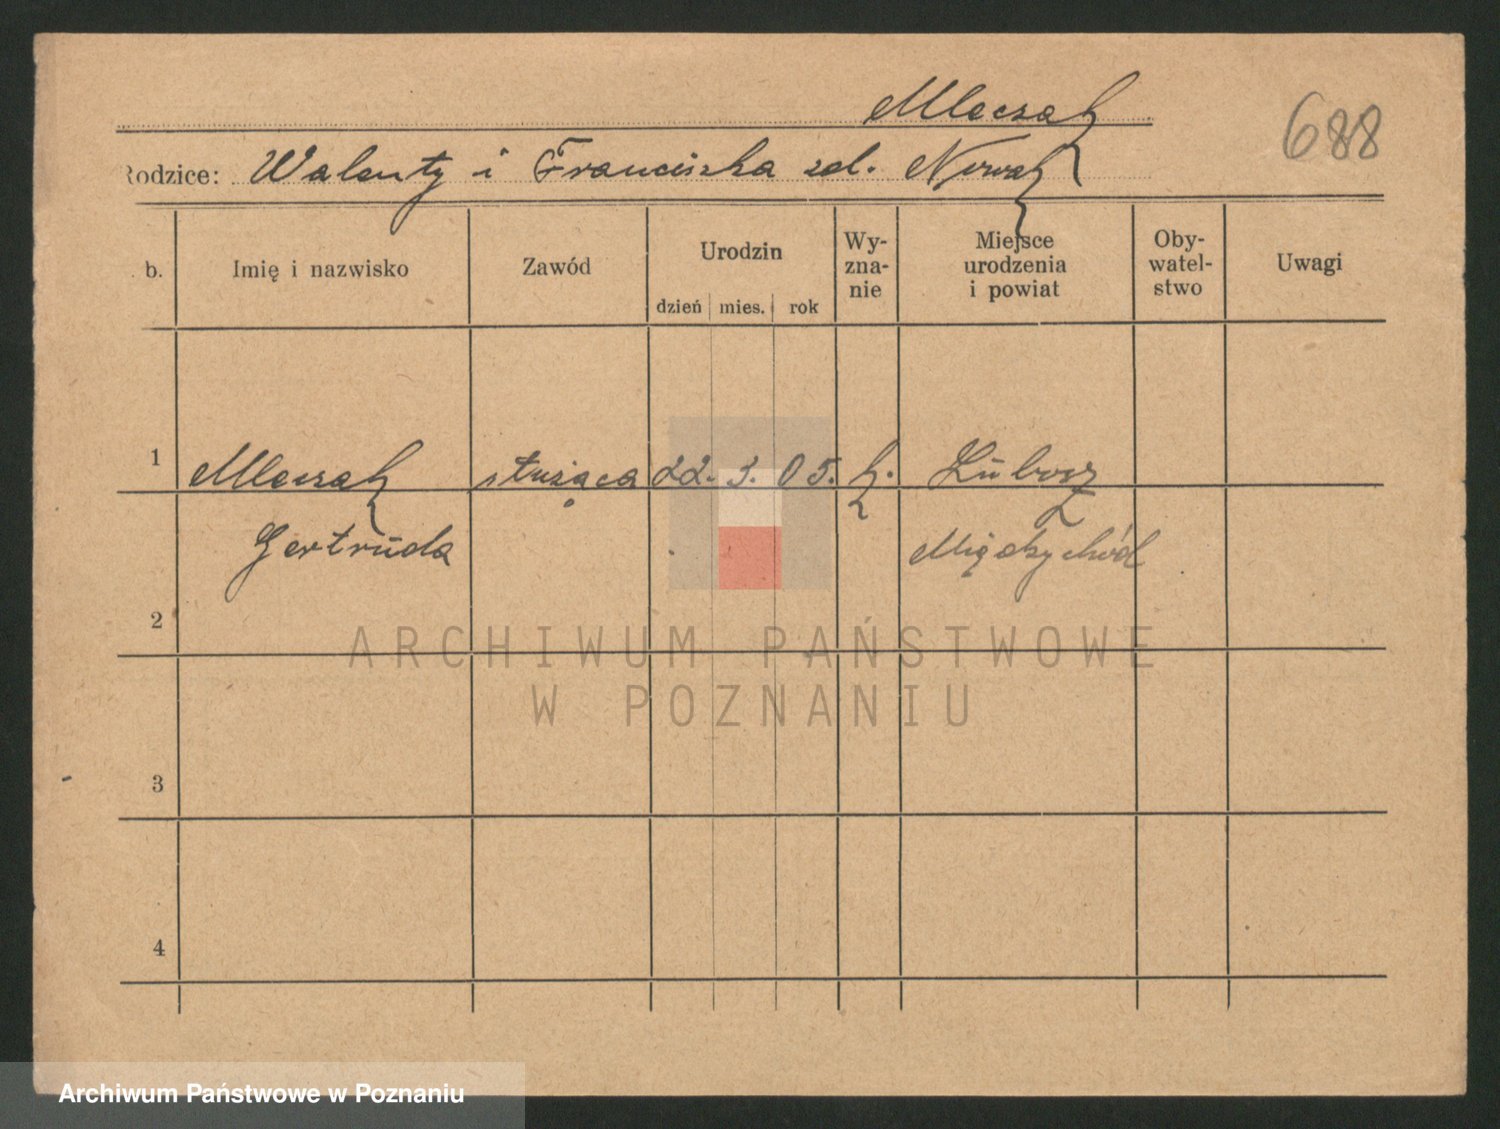 Mleczak
688
Rodzice: Walenty i Franciszka zd. Nowak
b. Imię i nazwisko Zawód Urodzin dzień mies. rok Wy-zna-nie Miejsce urodzenia i powiat Oby-watel-stwo Uwagi
1 Mleczak służąca 22. 3. 05. k. Lubosz
Gertruda Międzychód
2
ARCHIWUM PAŃSTWOWE
W POZNANIU
3
4
Archiwum Państwowe w Poznaniu